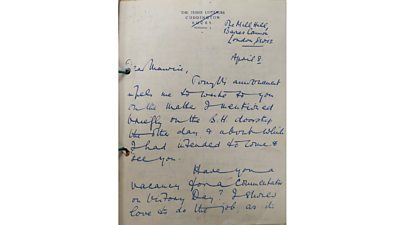 THE THREE COTTAGES
CUDDINGTON
BUCKS.
The Mill Hill,
Barnes Common
London SW13
April 8
Dear Maurice,
Tonight's announcement
impels me to write to you
on the matter I mentioned
briefly on the B.H. doorstep
the other day & about which
I had intended to come &
see you.
Have you a
vacancy for a Commentator
on Victory Day? I should
love to do the job as it